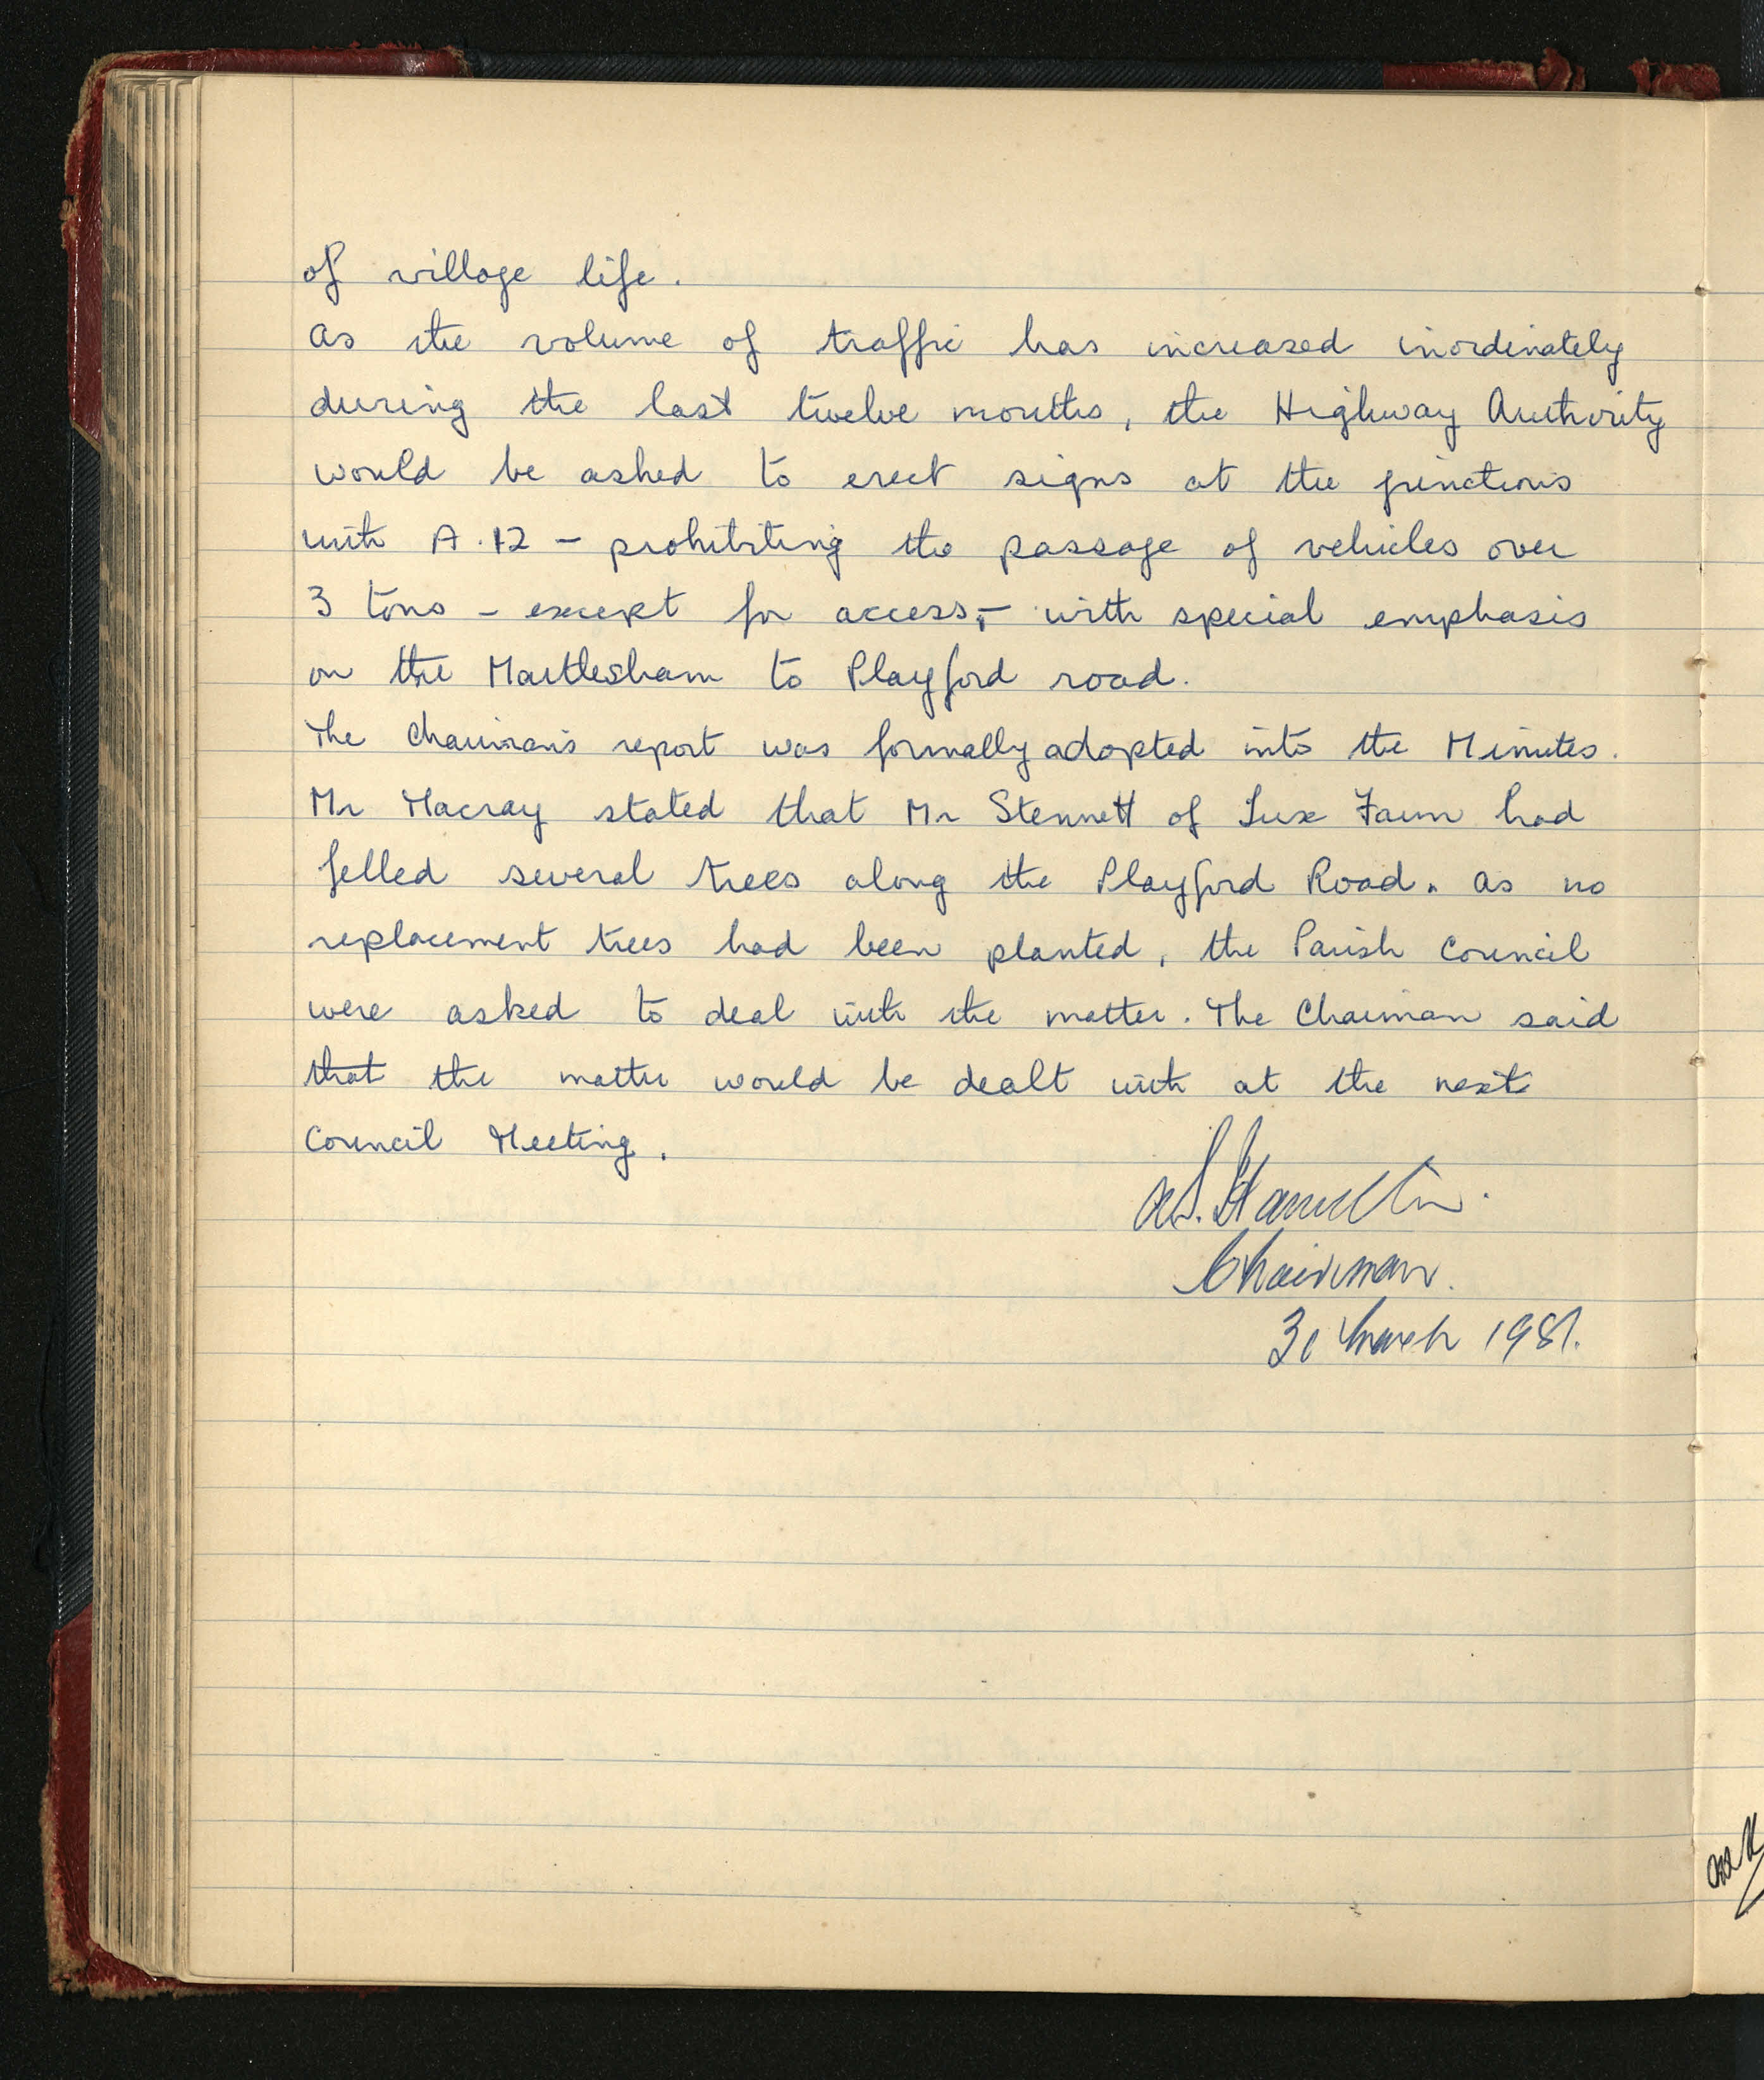 of village life.
as the volume of traffic has increased inordinately
during the last twelve months, the Highway Authority
would be asked to erect signs at the junctions
with A.12 - prohibiting the passage of vehicles over
3 tons - except for access, - with special emphasis
on the Martlesham to Playford road.
The Chairman's report was formally adopted into the Minutes.
Mr Macray stated that Mr Stennett of Lux Farm had
felled several trees along the Playford Road. as no
replacement trees had been planted, the Parish Council
were asked to deal with the matter. The Chairman said
that the matter would be dealt with at the next
Council Meeting.
Hamilton.
Chairman.
March 1981.